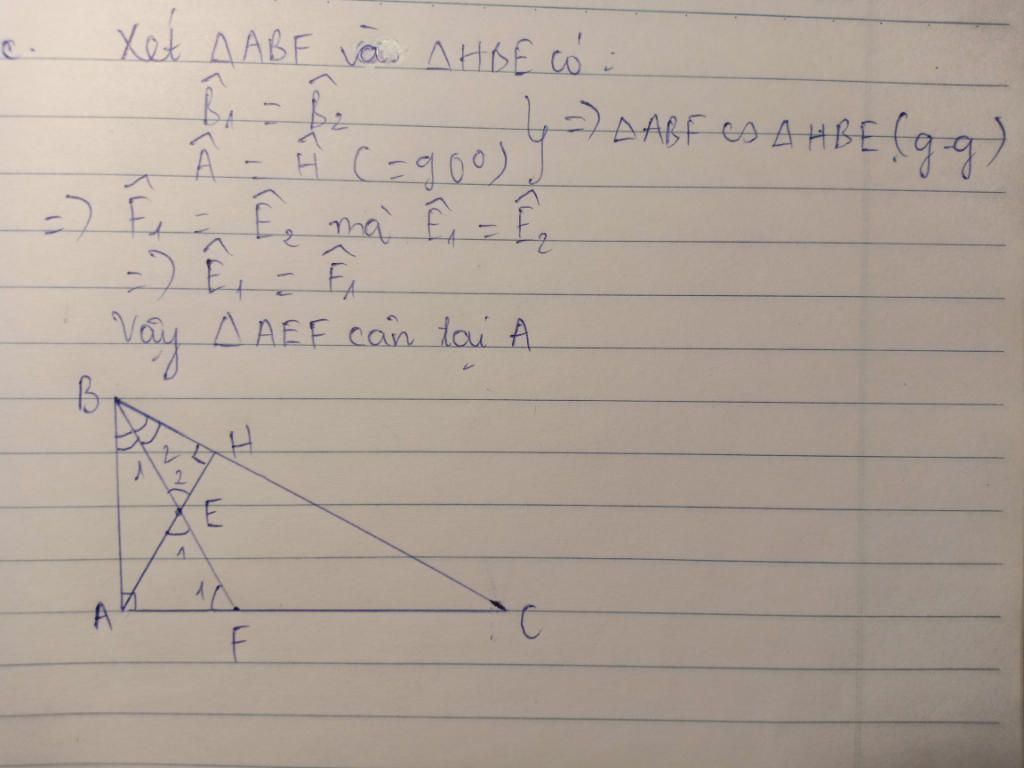 c. Xét ΔABF và ΔHBE có :
B̂₁ = B̂₂
Â = Ĥ (=90⁰) } => ΔABF ∽ ΔHBE (g-g)
=> F̂₁ = Ê₂ mà Ê₁ = Ê₂
=> Ê₁ = F̂₁
Vậy ΔAEF cân tại A
B
H
2
1
2
E
1
1
A
F
C